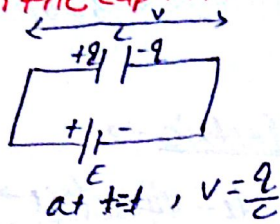 V
C
+q -q
+ -
E
at t=t, V = q/c